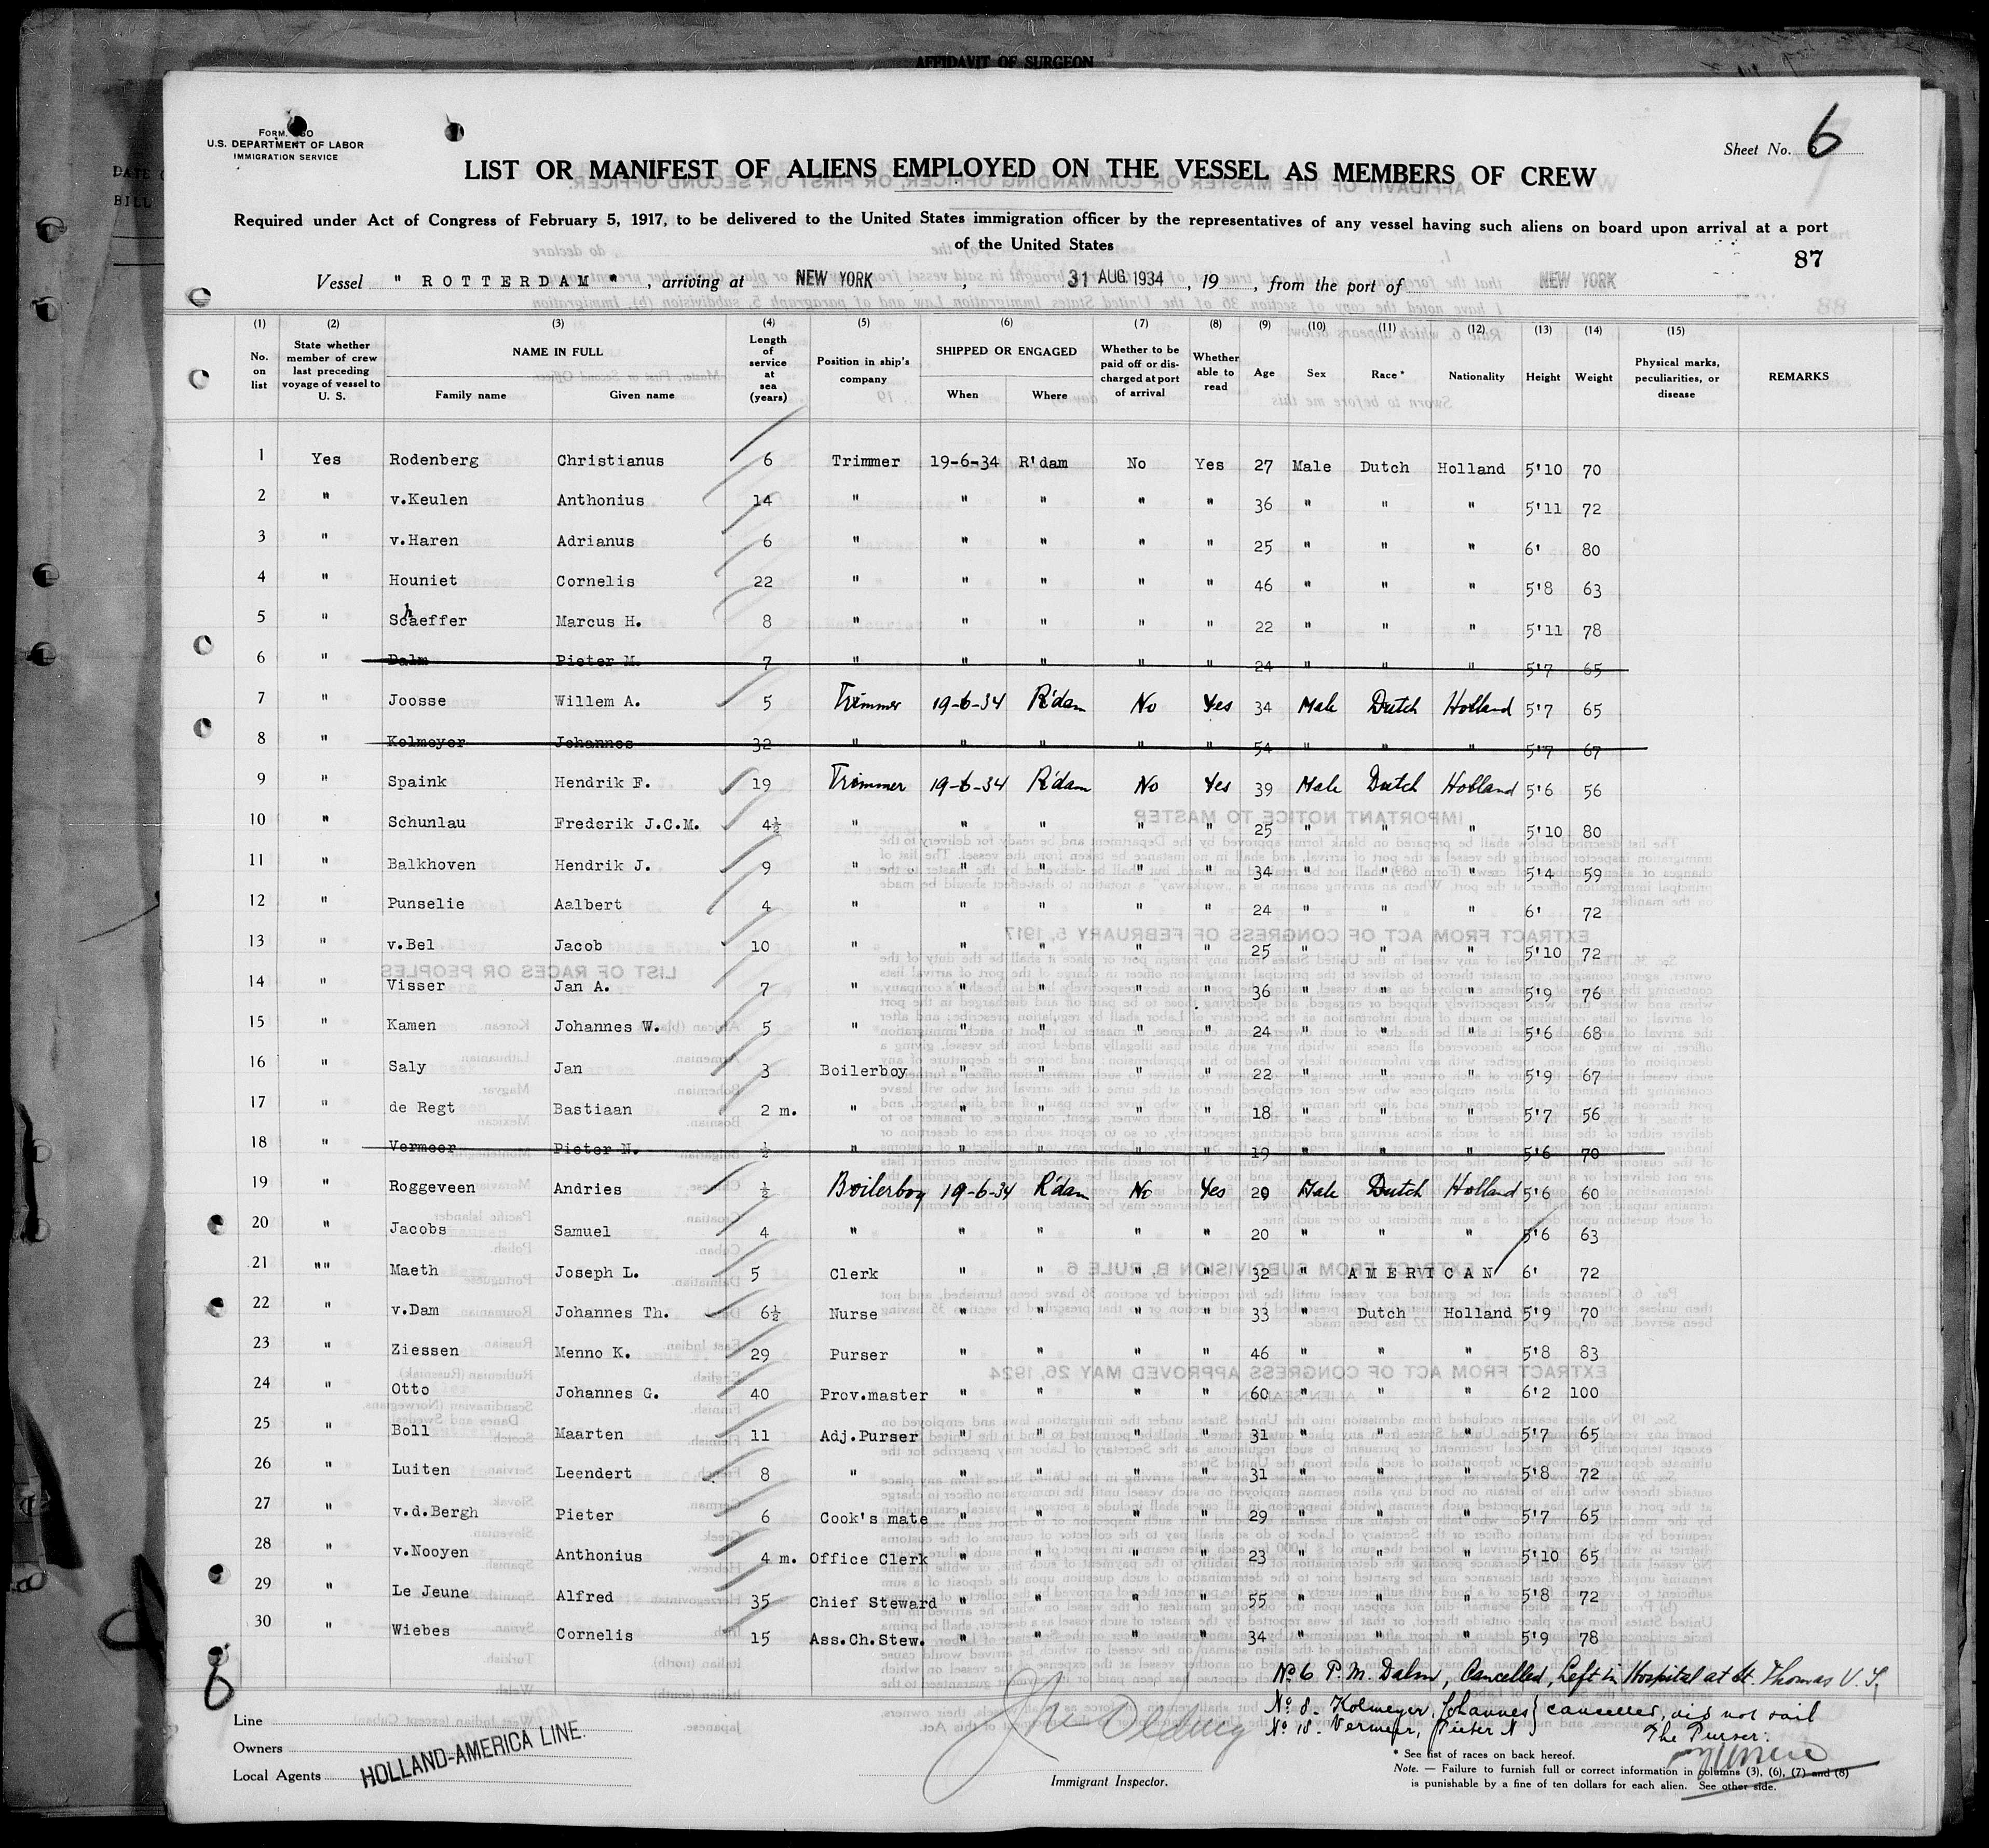 AFFIDAVIT OF SURGEON
U.S. DEPARTMENT OF LABOR
IMMIGRATION SERVICE
Sheet No. 6
LIST OR MANIFEST OF ALIENS EMPLOYED ON THE VESSEL AS MEMBERS OF CREW
Required under Act of Congress of February 5, 1917, to be delivered to the United States immigration officer by the representatives of any vessel having such aliens on board upon arrival at a port
of the United States
87
Vessel " ROTTERDAM ", arriving at NEW YORK, 31 AUG 1934, 19 , from the port of NEW YORK
(1) (2) (3) (4) (5) (6) (7) (8) (9) (10) (11) (12) (13) (14) (15)
No. on list State whether member of crew last preceding voyage of vessel to U. S. NAME IN FULL Length of service at sea (years) Position in ship's company SHIPPED OR ENGAGED Whether to be paid off or discharged at port of arrival Whether able to read Age Sex Race* Nationality Height Weight Physical marks, peculiarities, or disease REMARKS
Family name Given name When Where
1 Yes Rodenberg Christianus 6 Trimmer 19-6-34 R'dam No Yes 27 Male Dutch Holland 5'10 70
2 " v.Keulen Anthonius 14 " " " " " 36 " " " 5'11 72
3 " v.Haren Adrianus 6 " " " " " 25 " " " 6' 80
4 " Houniet Cornelis 22 " " " " " 46 " " " 5'8 63
5 " Schaeffer Marcus H. 8 " " " " " 22 " " " 5'11 78
6 " Dalm Pieter M. 7 " " " " " 24 " " " 5'7 65
7 " Joosse Willem A. 5 Trimmer 19-6-34 R'dam No Yes 34 Male Dutch Holland 5'7 65
8 " Kolmeyer Johannes 32 " " " " " 54 " " " 5'7 67
9 " Spaink Hendrik F. 19 Trimmer 19-6-34 R'dam No Yes 39 Male Dutch Holland 5'6 56
10 " Schunlau Frederik J.C.M. 4½ " " " " " 25 " " " 5'10 80
11 " Balkhoven Hendrik J. 9 " " " " " 34 " " " 5'4 59
12 " Punselie Aalbert 4 " " " " " 24 " " " 6' 72
13 " v.Bel Jacob 10 " " " " " 25 " " " 5'10 72
14 " Visser Jan A. 7 " " " " " 36 " " " 5'9 76
15 " Kamen Johannes W. 5 " " " " " 24 " " " 5'6 68
16 " Saly Jan 3 Boilerboy " " " " 22 " " " 5'9 67
17 " de Regt Bastiaan 2 m. " " " " " 18 " " " 5'7 56
18 " Vermeer Pieter N. ½ " " " " " 19 " " " 5'6 70
19 " Roggeveen Andries ½ Boilerboy 19-6-34 R'dam No Yes 20 Male Dutch Holland 5'6 60
20 " Jacobs Samuel 4 " " " " " 20 " " " 5'6 63
21 "" Maeth Joseph L. 5 Clerk " " " " 32 " AMERICAN 6' 72
22 " v.Dam Johannes Th. 6½ Nurse " " " " 33 " Dutch Holland 5'9 70
23 " Ziessen Menno K. 29 Purser " " " " 46 " " " 5'8 83
24 " Otto Johannes G. 40 Prov.master " " " " 60 " " " 6'2 100
25 " Boll Maarten 11 Adj.Purser " " " " 31 " " " 5'7 65
26 " Luiten Leendert 8 " " " " " 31 " " " 5'8 72
27 " v.d.Bergh Pieter 6 Cook's mate " " " " 29 " " " 5'7 65
28 " v.Nooyen Anthonius 4 m. Office Clerk " " " " 23 " " " 5'10 65
29 " Le Jeune Alfred 35 Chief Steward " " " " 55 " " " 5'8 72
30 " Wiebes Cornelis 15 Ass.Ch.Stew. " " " " 34 " " " 5'9 78
No 6 P.M. Dalm, Cancelled, Left in Hospital at St. Thomas V.I.
No 8. Kolmeyer, Johannes } cancelled, did not sail
No 18. Vermeer, Pieter N
The Purser.
8
Line
Owners
Local Agents HOLLAND-AMERICA LINE.
Immigrant Inspector.
* See list of races on back hereof.
Note. — Failure to furnish full or correct information in columns (3), (6), (7) and (8)
is punishable by a fine of ten dollars for each alien. See other side.